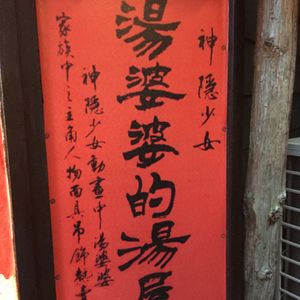 神隱少女
湯婆婆的湯屋
神隱少女動畫中湯婆婆
家族中之主角人物面具吊飾